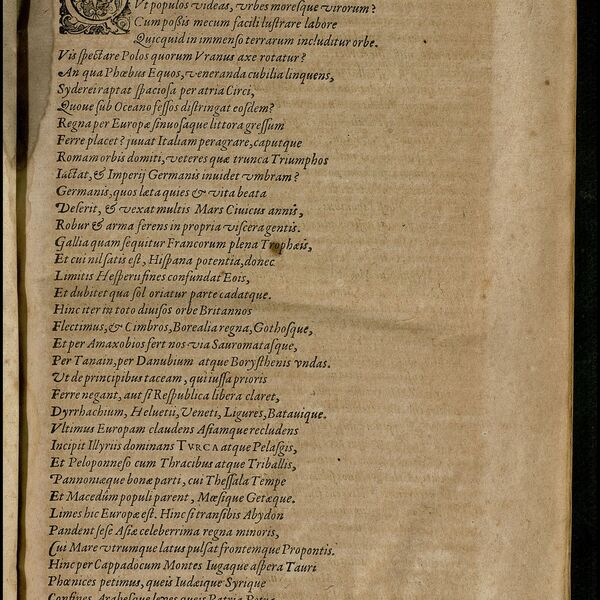 Vt populos videas, vrbes moresque virorum?
Cum poßis mecum facili lustrare labore
Quicquid in immenso terrarum includitur orbe.
Vis spectare Polos quorum Vranus axe rotatur?
An qua Phœbus Equos, veneranda cubilia linquens,
Sydereiraptat spaciosa per atria Circi,
Quoue sub Oceano fessos distringat eosdem?
Regna per Europæ sinuosaque littora gressum
Ferre placet? iuuat Italiam peragrare, caputque
Romam orbis domiti, veteres quæ trunca Triumphos
Iactat, & Imperij Germanis inuidet vmbram?
Germanis, quos læta quies & vita beata
Deserit, & vexat multis Mars Ciuicus annis,
Robur & arma ferens in propria viscera gentis.
Gallia quam sequitur Francorum plena Trophæis,
Et cui nil satis est, Hispana potentia, donec
Limitis Hesperii fines confundat Eois,
Et dubitet qua sol oriatur parte cadatque.
Hinc iter in toto diuisos orbe Britannos
Flectimus, & Cimbros, Borealia regna, Gothosque,
Et per Amaxobios fert nos via Sauromatasque,
Per Tanain, per Danubium atque Borysthenis vndas.
Vt de principibus taceam, qui iussa prioris
Ferre negant, aut si Respublica libera claret,
Dyrrhachium, Heluetii, Veneti, Ligures, Batauique.
Vltimus Europam claudens Asiamque recludens
Incipit Illyriis dominans TVRCA atque Pelasgis,
Et Peloponneso cum Thracibus atque Triballis,
Pannoniæque bonæ parti, cui Thessala Tempe
Et Macedûm populi parent, Mœsique Getæque.
Limes hic Europæ est. Hinc si transibis Abydon
Pandent sese Asiæ celeberrima regna minoris,
Cui Mare vtrumque latus pulsat frontemque Propontis.
Hinc per Cappadocum Montes Iugaque aspera Tauri
Phœnices petimus, queis Iudæique Syrique
Confines, Arabesque leues queis Patria Petra